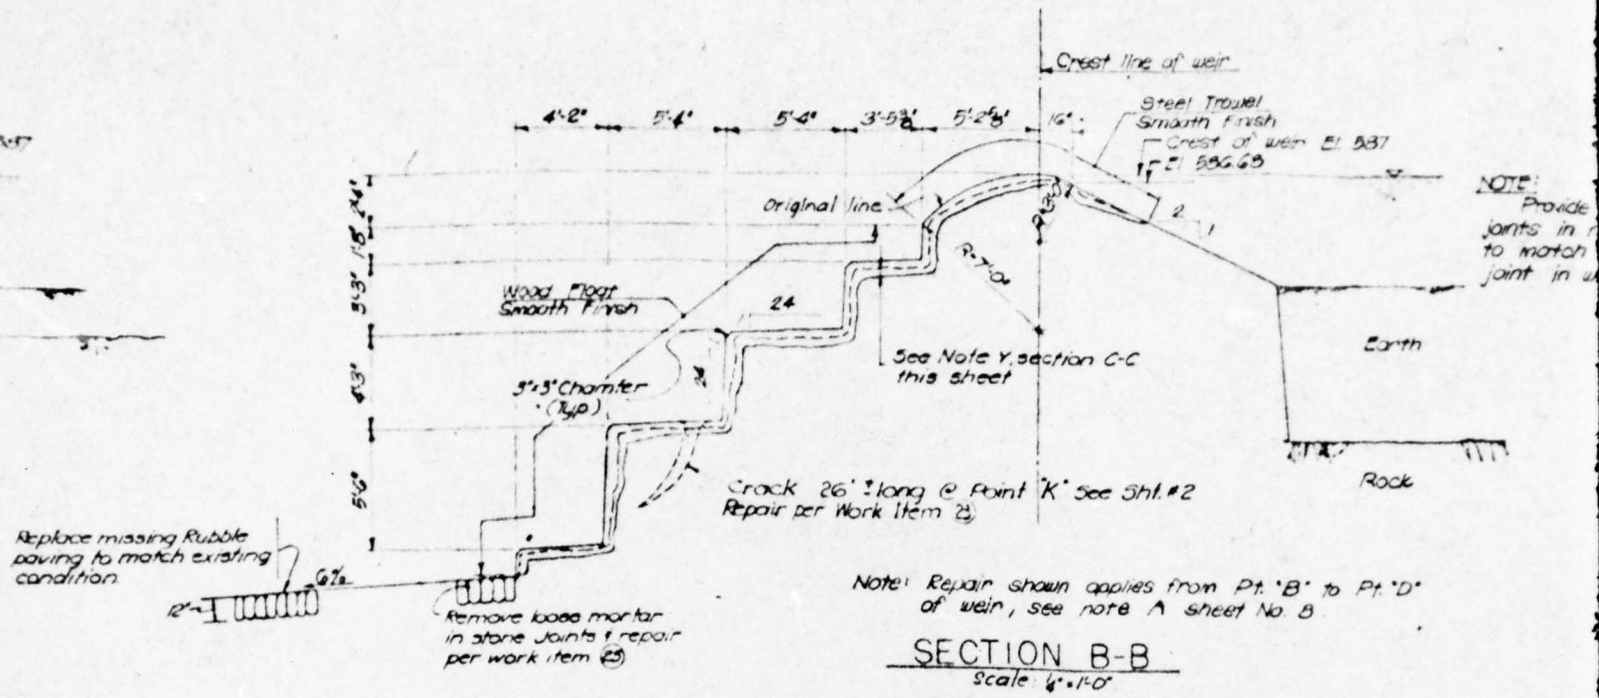 Crest line of weir
4'-2"
5'-4"
5'-4"
16"
Steel Trowel
Smooth Finish
Crest of weir El. 587
El 586.68
NOTE:
Provide
joints in
to match
joint in
Original line
2
1
2'-4"
1'-8"
3'-3"
4'-3"
5'-6"
R=7'-0"
Wood Float
Smooth Finish
24
24
See Note Y, section C-C
this sheet
Earth
3"x3" Chamfer
(Typ)
Rock
Crack 26' ± long @ Point "K" See Sht. #2
Repair per Work Item
Replace missing Rubble
paving to match existing
condition
6%
12"
Remove loose mortar
in stone joints & repair
per work item 25
Note: Repair shown applies from Pt. "B" to Pt. "D"
of weir, see note A sheet No. 8
SECTION B-B
Scale: 1/4"=1'-0"